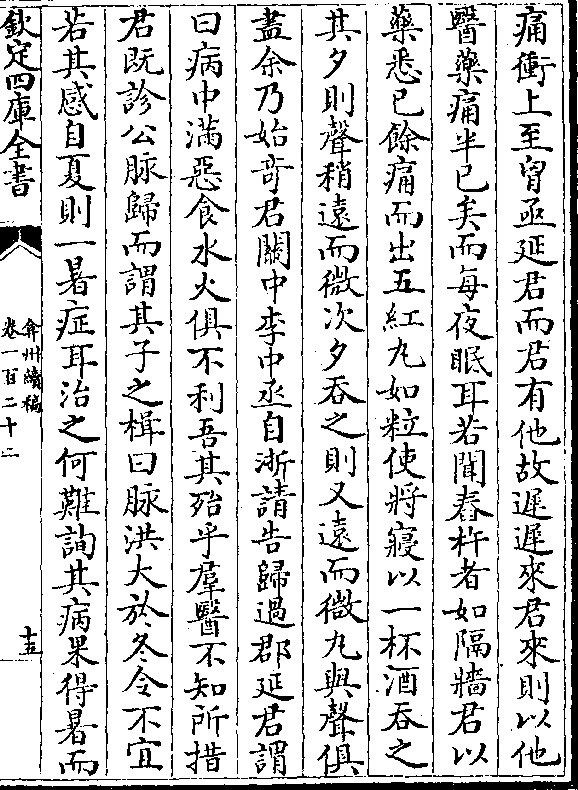 痛衝上至胷亟延君而君有他故遲遲來君來則以他
醫藥痛半已矣而每夜眠耳若聞舂杵者如隔牆君以
藥悉已餘痛而出五紅丸如粒使將寢以一杯酒吞之
其夕則聲稍遠而微次夕吞之則又遠而微丸與聲俱
盡余乃始竒君關中李中丞自浙請告歸過郡延君謂
曰病中滿惡食水火俱不利吾其殆乎羣醫不知所措
君既診公脉歸而謂其子之楫曰脉洪大於冬令不宜
若其感自夏則一暑症耳治之何難詢其病果得暑而
欽定四庫全書
弇州續稿
卷一百二十二
十五